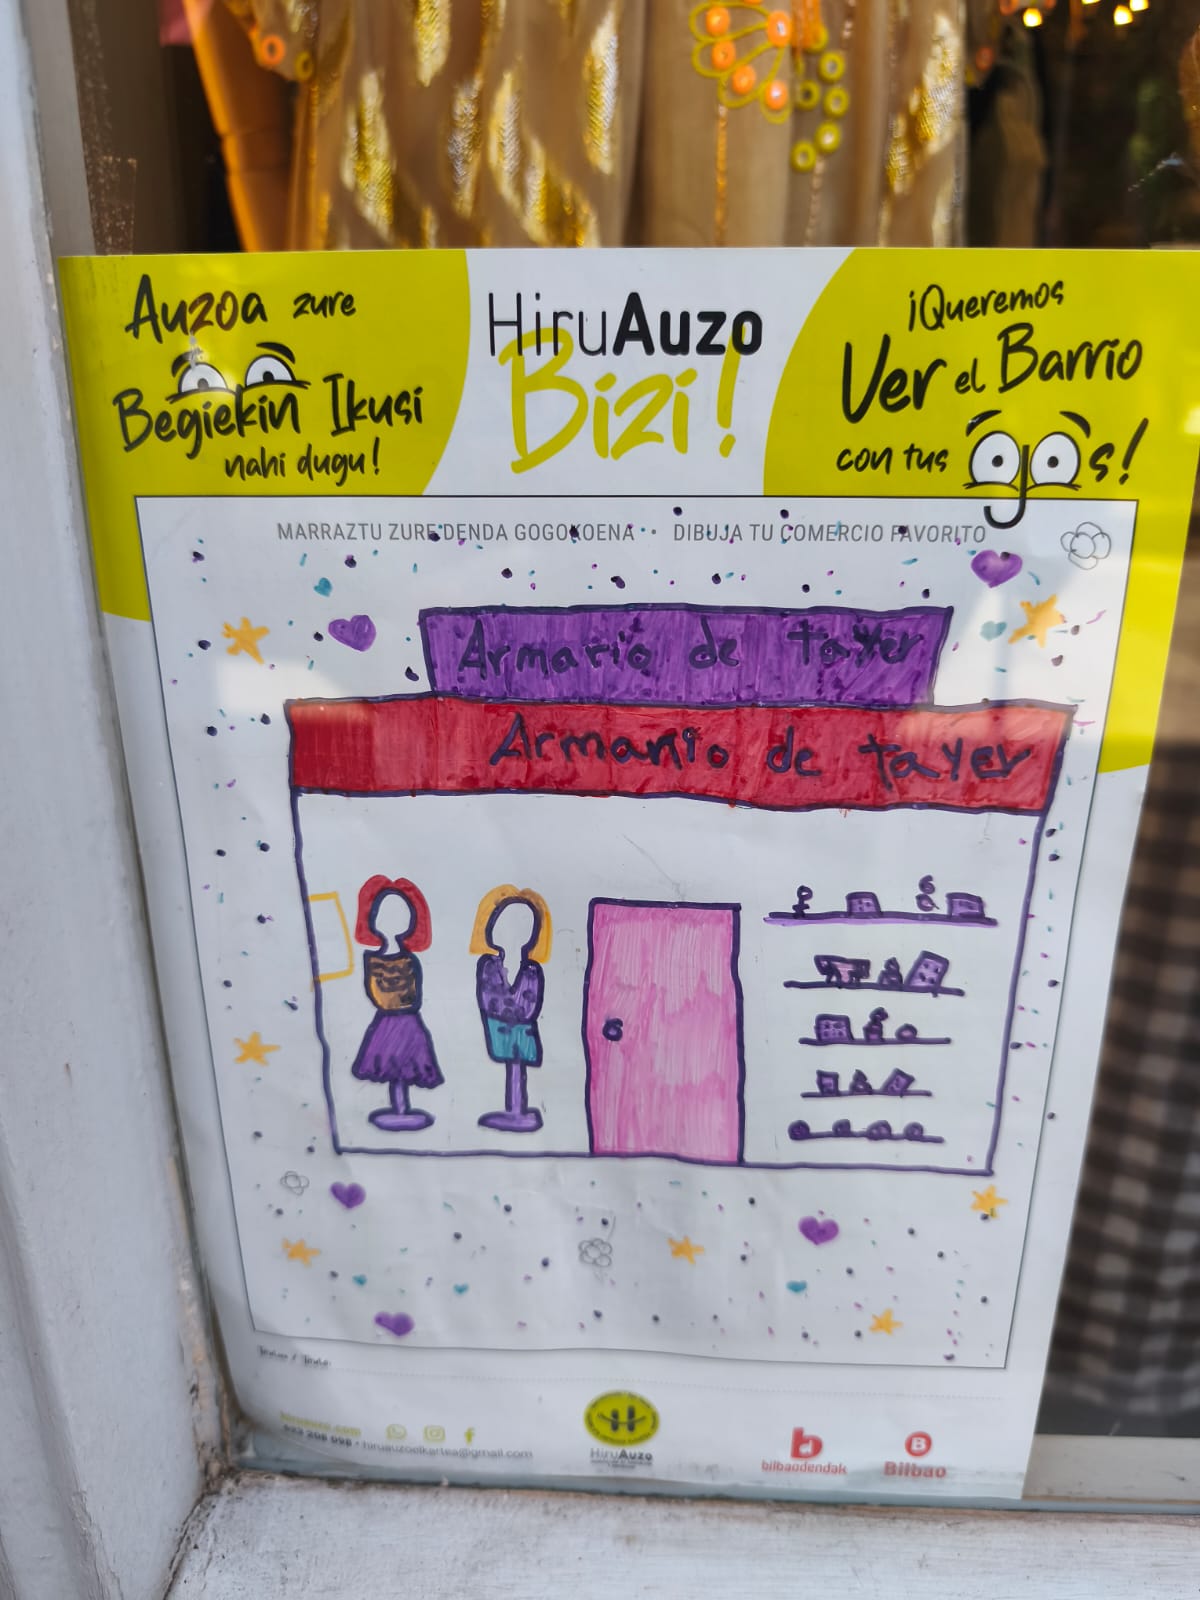 Auzoa zure
Begiekin Ikusi
nahi dugu!
HiruAuzo
Bizi!
¡Queremos
Ver el Barrio
con tus ojos!
MARRAZTU ZURE DENDA GOGOKOENA • DIBUJA TU COMERCIO FAVORITO
Armario de tayer
Armario de tayer
hiruauzo.com
hiruauzoelkartea@gmail.com
HiruAuzo
bilbaodendak
Bilbao